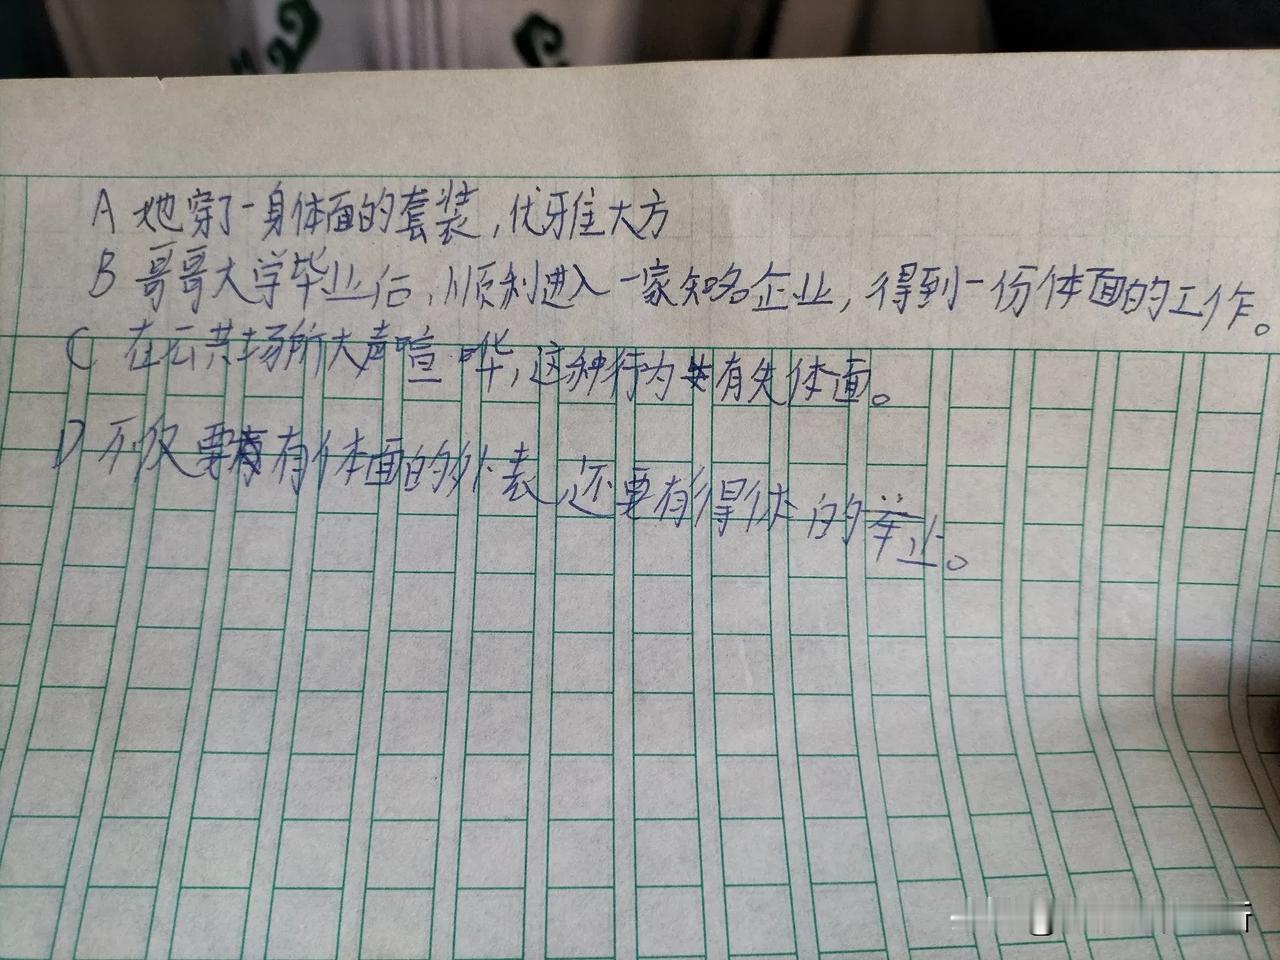 A 她穿了一身体面的套装,优雅大方
B 哥哥大学毕业后,顺利进入一家知名企业,得到一份体面的工作。
C 在公共场所大声喧哗,这种行为有失体面。
D 不仅要有体面的外表,还要有得体的举止。